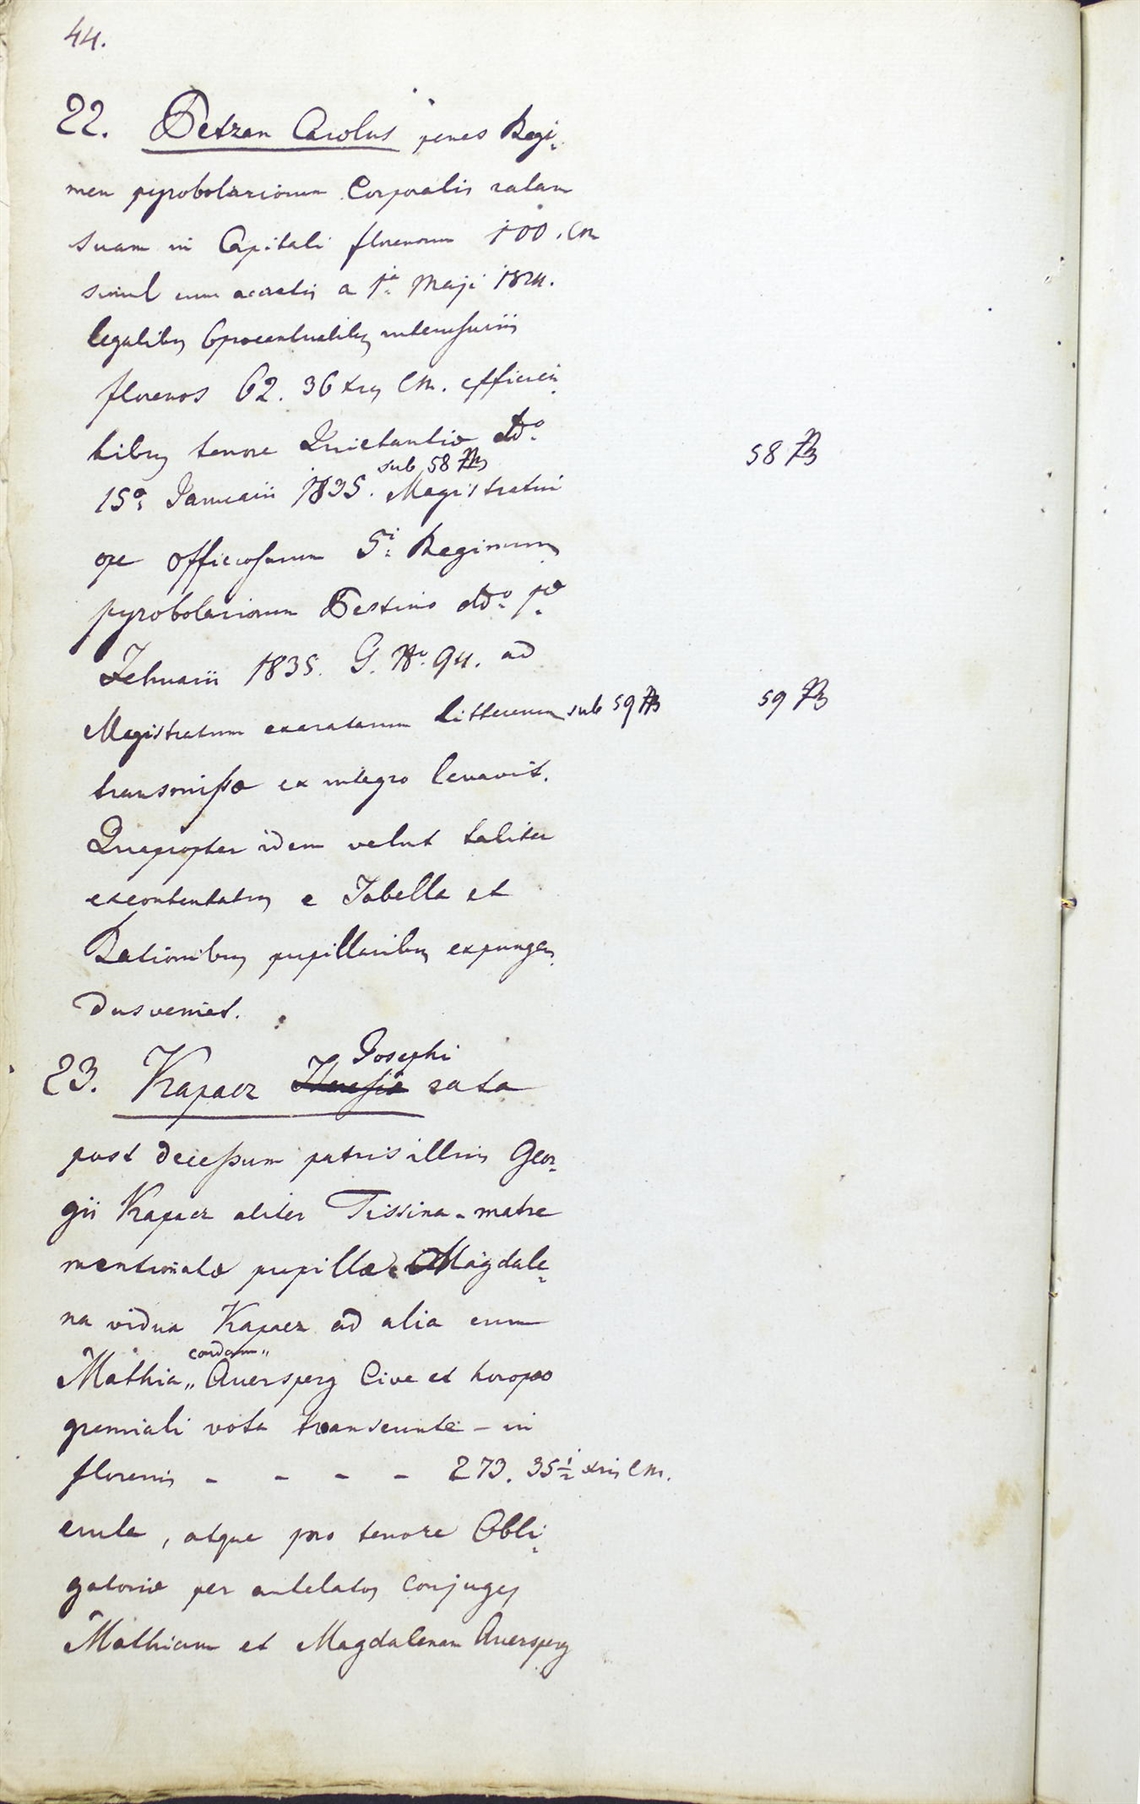 44.
22. Petzan Carolus penes Regi-
men pyrobolariorum Corporalis ratam
suam in Capitali florenorum 100. CM
simul cum accretis a 1a Maji 1824.
legalibus 6procentualibus interusurii
florenos 62. 36 xros CM. efficien-
tibus tenore Quietantiae ddo
15a Januarii 1835. sub 58 Magistratui
ope officiosarum 5i Regiminis
pyrobolariorum Pestino ddo 1a
Februarii 1835. G. No. 94. ad
Magistratum exaratarum litterarum sub 59
transmissae ex integro levavit.
Quapropter idem velut taliter
excontentatus e Tabella et
Rationibus pupillaribus expungen-
dus veniet.
58
59
23. Kapacz Josephi rata
post decessum patris illius Geor-
gii Kapacz aliter Tissina - matre
mentionatae pupillae Magdale-
na vidua Kapacz ad alia cum
Mathia „ condam „ Auersperg Cive et
gremiali vota transeunte - in
florenis - - - - 273. 35 1/2 xris CM.
eruta, atque pro tenore Obli-
gatoriae per antelatos Conjuges
Mathiam et Magdalenam Auersperg